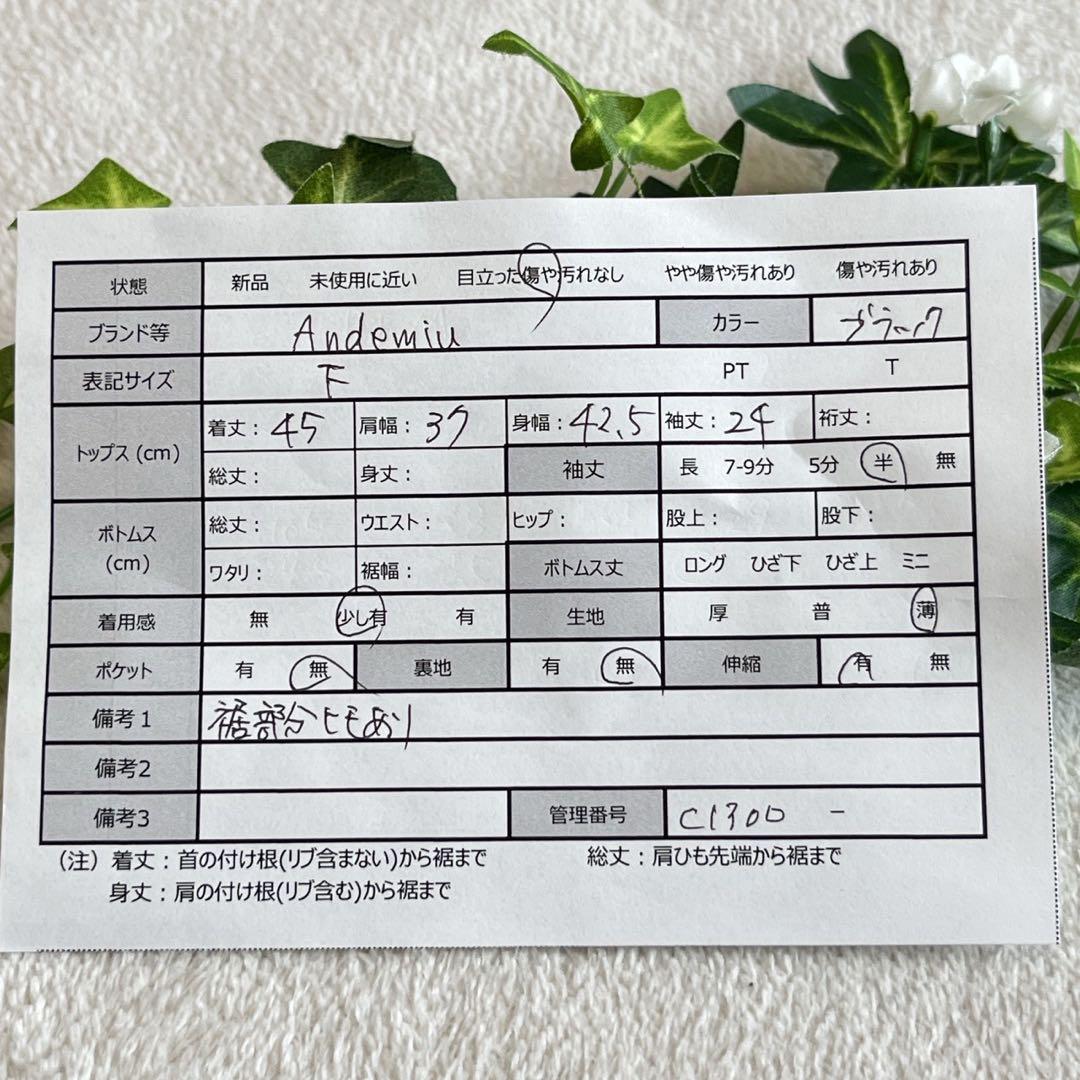 状態 新品 未使用に近い 目立った傷や汚れなし やや傷や汚れあり 傷や汚れあり
ブランド等 Andemiu カラー ブラック
表記サイズ F PT T
トップス (cm)
着丈： 45 肩幅： 37 身幅： 42.5 袖丈： 24 裄丈：
総丈： 身丈： 袖丈 長 7-9分 5分 半 無
ボトムス (cm)
総丈： ウエスト： ヒップ： 股上： 股下：
ワタリ： 裾幅： ボトムス丈 ロング ひざ下 ひざ上 ミニ
着用感 無 少し有 有 生地 厚 普 薄
ポケット 有 無 裏地 有 無 伸縮 有 無
備考1 裾部分ヒモあり
備考2
備考3 管理番号 C1300 -
（注）着丈：首の付け根(リブ含まない)から裾まで 総丈：肩ひも先端から裾まで
身丈：肩の付け根(リブ含む)から裾まで